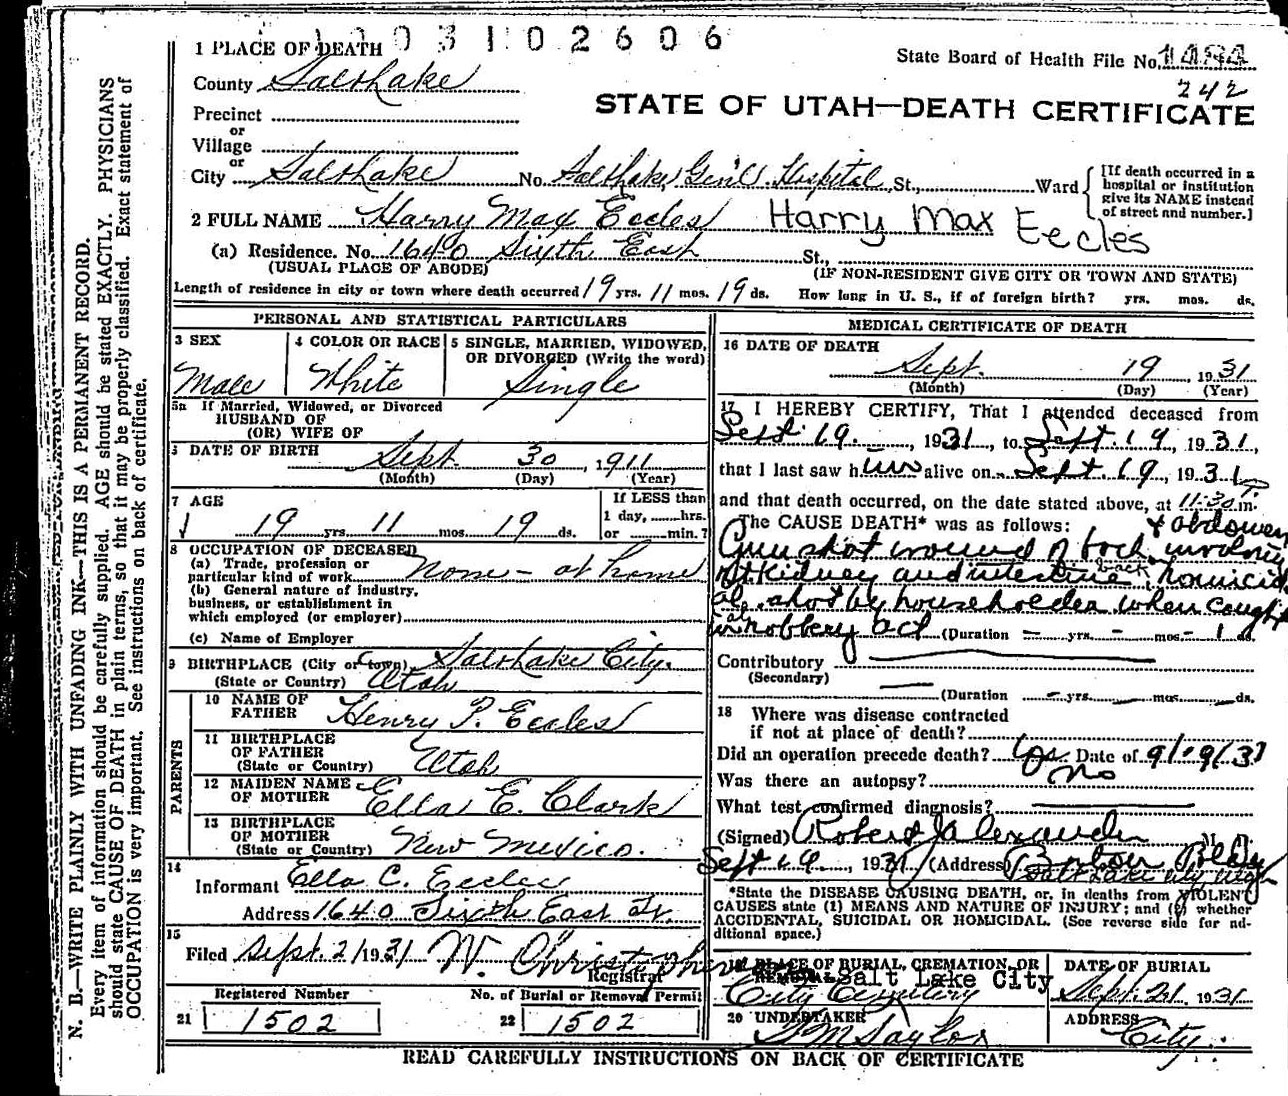 1003102606
1 PLACE OF DEATH
State Board of Health File No. 1484
County Salt Lake
242
STATE OF UTAH—DEATH CERTIFICATE
Precinct
or
Village
or
City Salt Lake No. Salt Lake Gen'l. Hospital St., Ward
[If death occurred in a hospital or institution give its NAME instead of street and number.]
2 FULL NAME Harry Max Eccles Harry Max Eccles
(a) Residence. No. 1640 Sixth East St.,
(USUAL PLACE OF ABODE) (IF NON-RESIDENT GIVE CITY OR TOWN AND STATE)
Length of residence in city or town where death occurred 19 yrs. 11 mos. 19 ds. How long in U. S., if of foreign birth? yrs. mos. ds.
PERSONAL AND STATISTICAL PARTICULARS
3 SEX
Male
4 COLOR OR RACE
White
5 SINGLE, MARRIED, WIDOWED,
OR DIVORCED (Write the word)
Single
5a If Married, Widowed, or Divorced
HUSBAND OF
(OR) WIFE OF
DATE OF BIRTH Sept. 30, 1911
(Month) (Day) (Year)
7 AGE
19 yrs. 11 mos. 19 ds.
If LESS than
1 day, hrs.
or min.?
8 OCCUPATION OF DECEASED
(a) Trade, profession or
particular kind of work None - at home
(b) General nature of industry,
business, or establishment in
which employed (or employer)
(c) Name of Employer
9 BIRTHPLACE (City or town) Salt Lake City.
(State or Country) Utah
PARENTS
10 NAME OF
FATHER Henry P. Eccles
11 BIRTHPLACE
OF FATHER
(State or Country) Utah
12 MAIDEN NAME
OF MOTHER Ella E. Clark
13 BIRTHPLACE
OF MOTHER
(State or Country) New Mexico.
14
Informant Ella C. Eccles
Address 1640 Sixth East St.
15
Filed Sept. 21 1931 W. Christopherson
Registrar
Registered Number
21 1502
No. of Burial or Removal Permit
22 1502
MEDICAL CERTIFICATE OF DEATH
16 DATE OF DEATH
Sept. 19, 1931
(Month) (Day) (Year)
17 I HEREBY CERTIFY, That I attended deceased from
Sept. 19, 1931, to Sept. 19, 1931,
that I last saw him alive on Sept. 19, 1931,
and that death occurred, on the date stated above, at 11:30 P. m.
The CAUSE DEATH* was as follows: & abdomen
Gun shot wound of back involving
rt kidney and intestine back homicid
al. shot by householder when caught
in robbery act (Duration — yrs. — mos. 1 ds.
Contributory
(Secondary)
(Duration — yrs. mos. ds.
18 Where was disease contracted
if not at place of death?
Did an operation precede death? Yes. Date of 9/19/31
Was there an autopsy? No
What test confirmed diagnosis?
(Signed) Robert J Alexander
Sept 19, 1931 (Address)
*State the DISEASE CAUSING DEATH, or, in deaths from VIOLENT
CAUSES state (1) MEANS AND NATURE OF INJURY; and (2) whether
ACCIDENTAL, SUICIDAL OR HOMICIDAL. (See reverse side for ad-
ditional space.)
19 PLACE OF BURIAL, CREMATION, OR
REMOVAL Salt Lake City
City Cemetery
DATE OF BURIAL
Sept. 21, 1931
20 UNDERTAKER
S M Taylor
ADDRESS
City.
READ CAREFULLY INSTRUCTIONS ON BACK OF CERTIFICATE
N. B.—WRITE PLAINLY WITH UNFADING INK—THIS IS A PERMANENT RECORD.
Every item of information should be carefully supplied. AGE should be stated EXACTLY. PHYSICIANS
should state CAUSE OF DEATH in plain terms, so that it may be properly classified. Exact statement of
OCCUPATION is very important. See instructions on back of certificate.